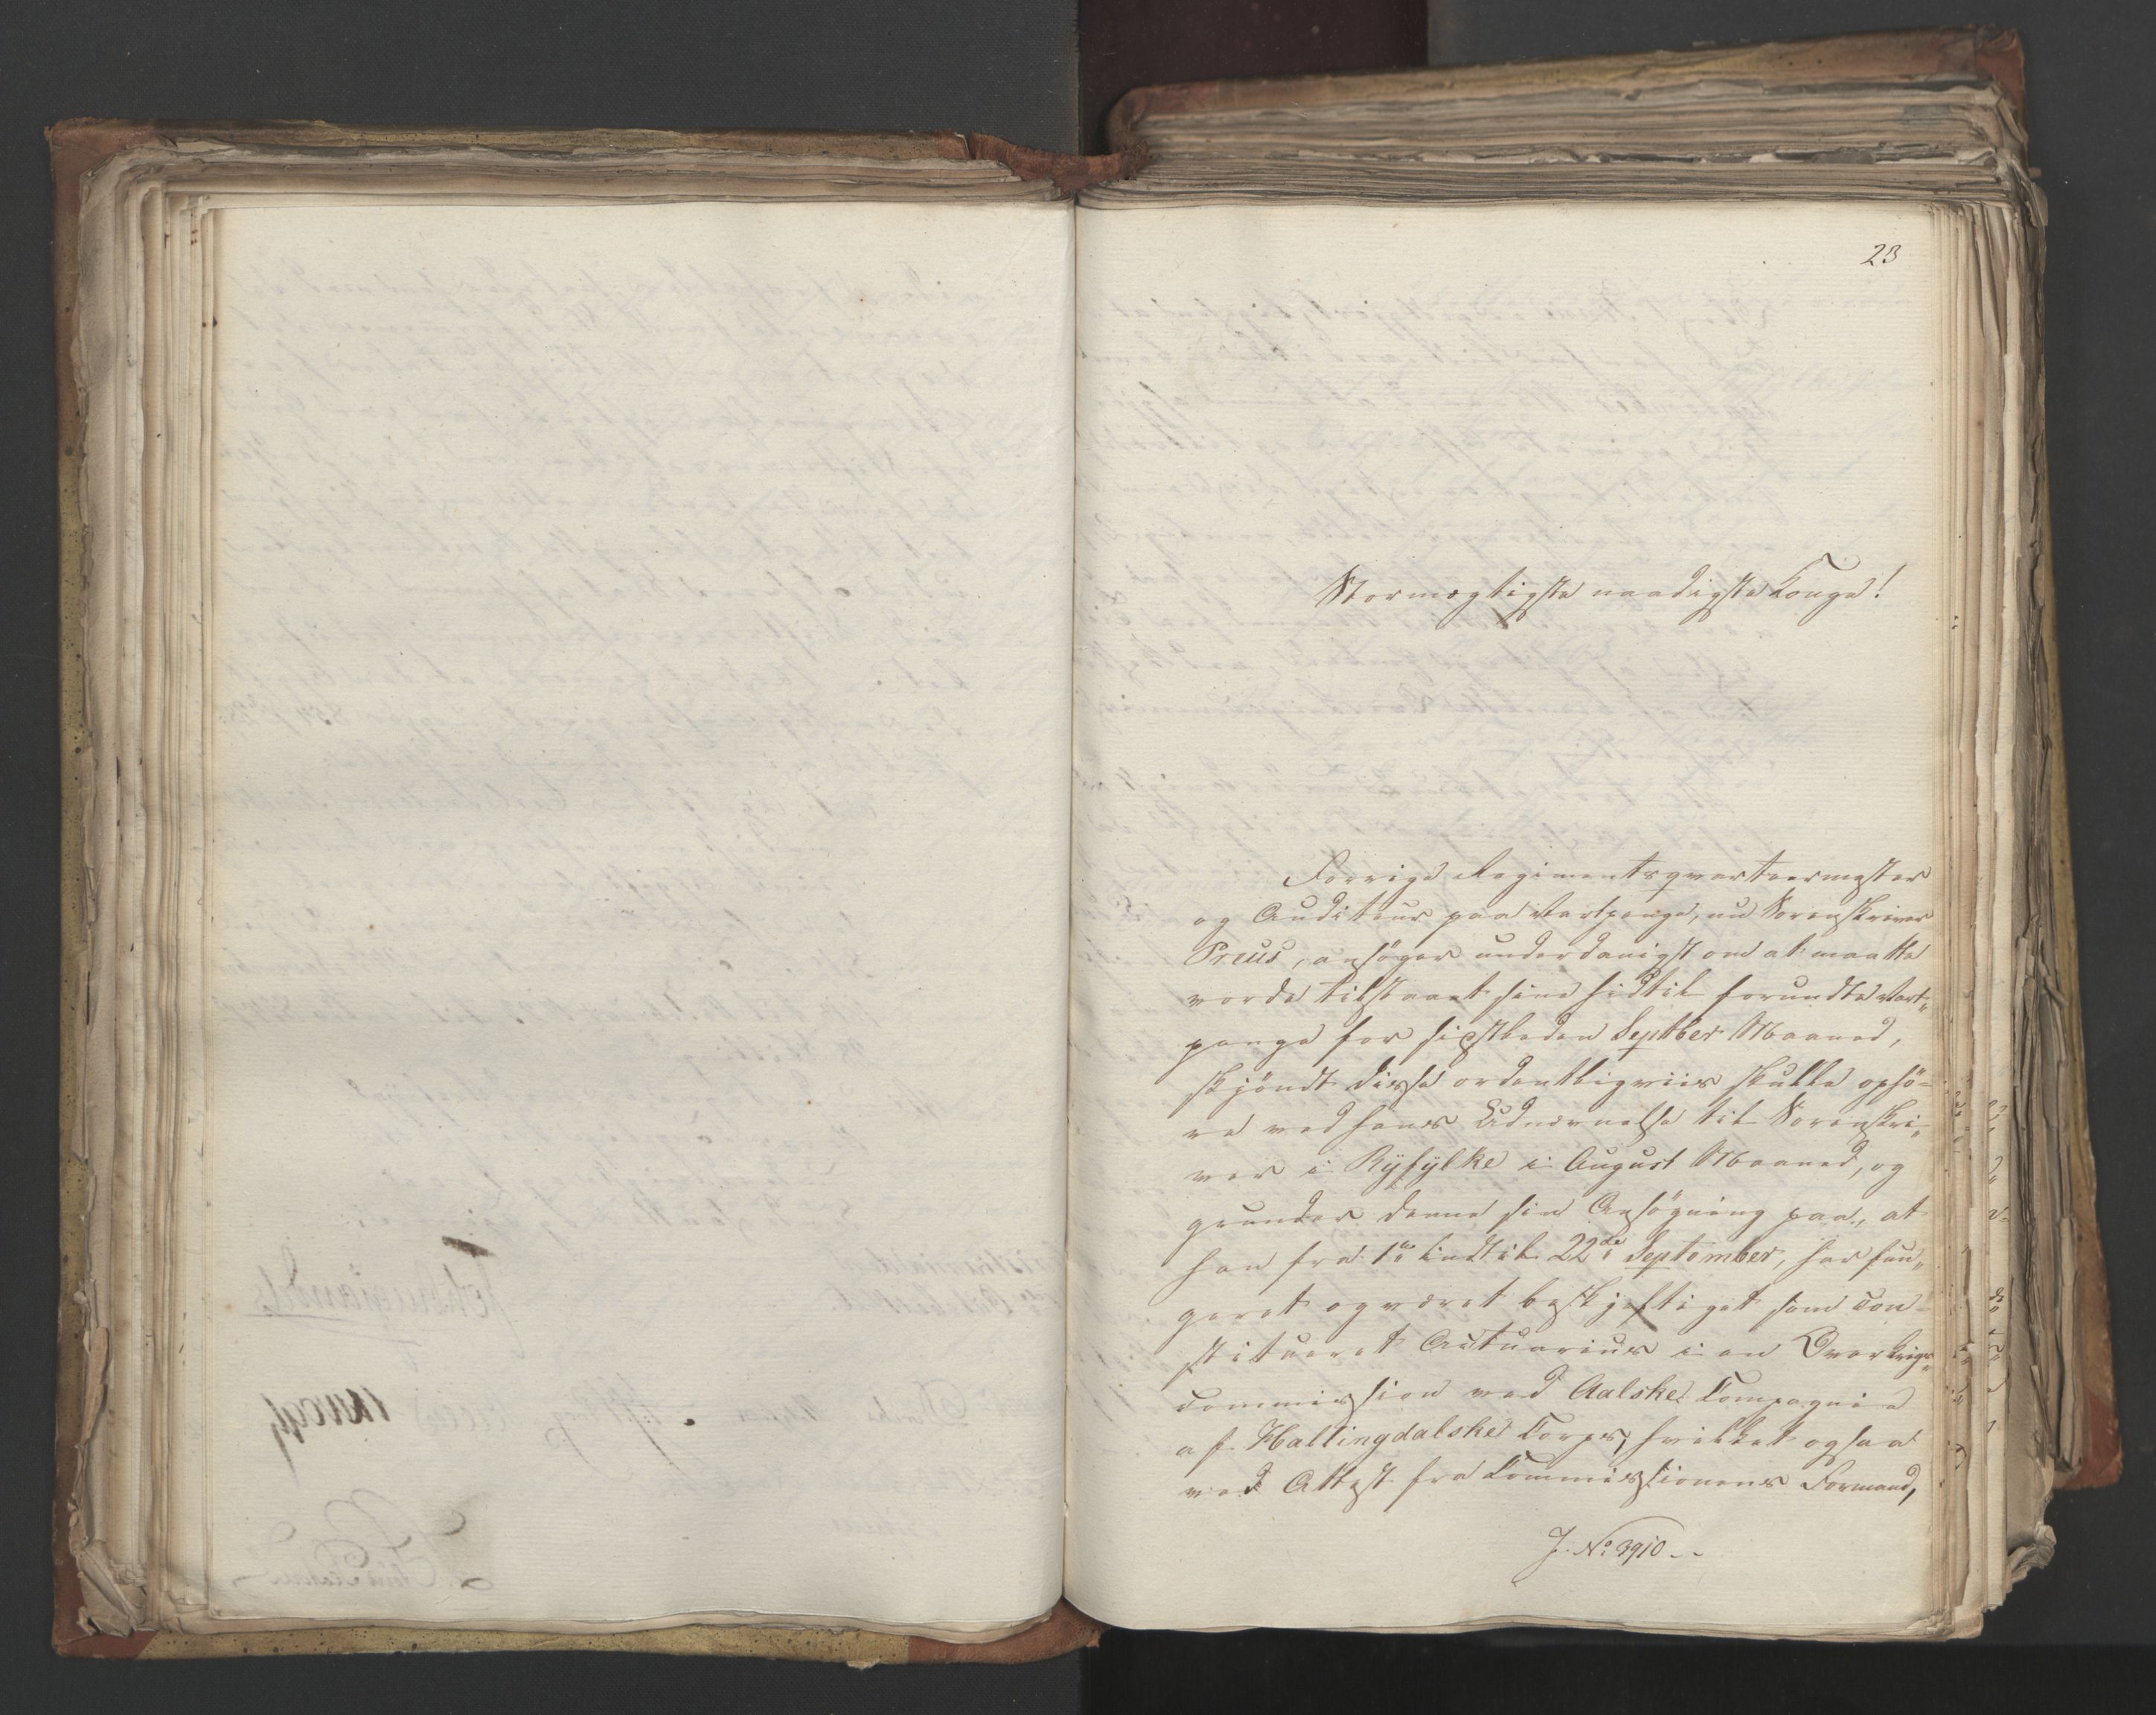 23
Stormægtigste naadigste Konge!
Forrige Regimentsqvarteermester
og Auditeur paa Vartpenge, nu Sorenskriver
Preus, ansöger underdanigst om at maatte
vorde tilstaaet sine hidtil forundte Vart„
penge for sidstleden Septber Maaned,
skjöndt disse ordentligviis skulle ophö=
re ved hans Udnævnelse til Sorenskri„
ver i Ryfylke i August Maaned, og
grunder denne sin Ansögning paa, at
han fra 1ste indtil 22de September, har fun„
geret og været beskjeftiget som Con=
stitueret Actuarius i en Overkrigs„
commission ved Aalske Compagnie
af Hallingdalske Corps, hvilket ogsaa
ved Attest fra Commissionens Formand,
J. No 3910 --